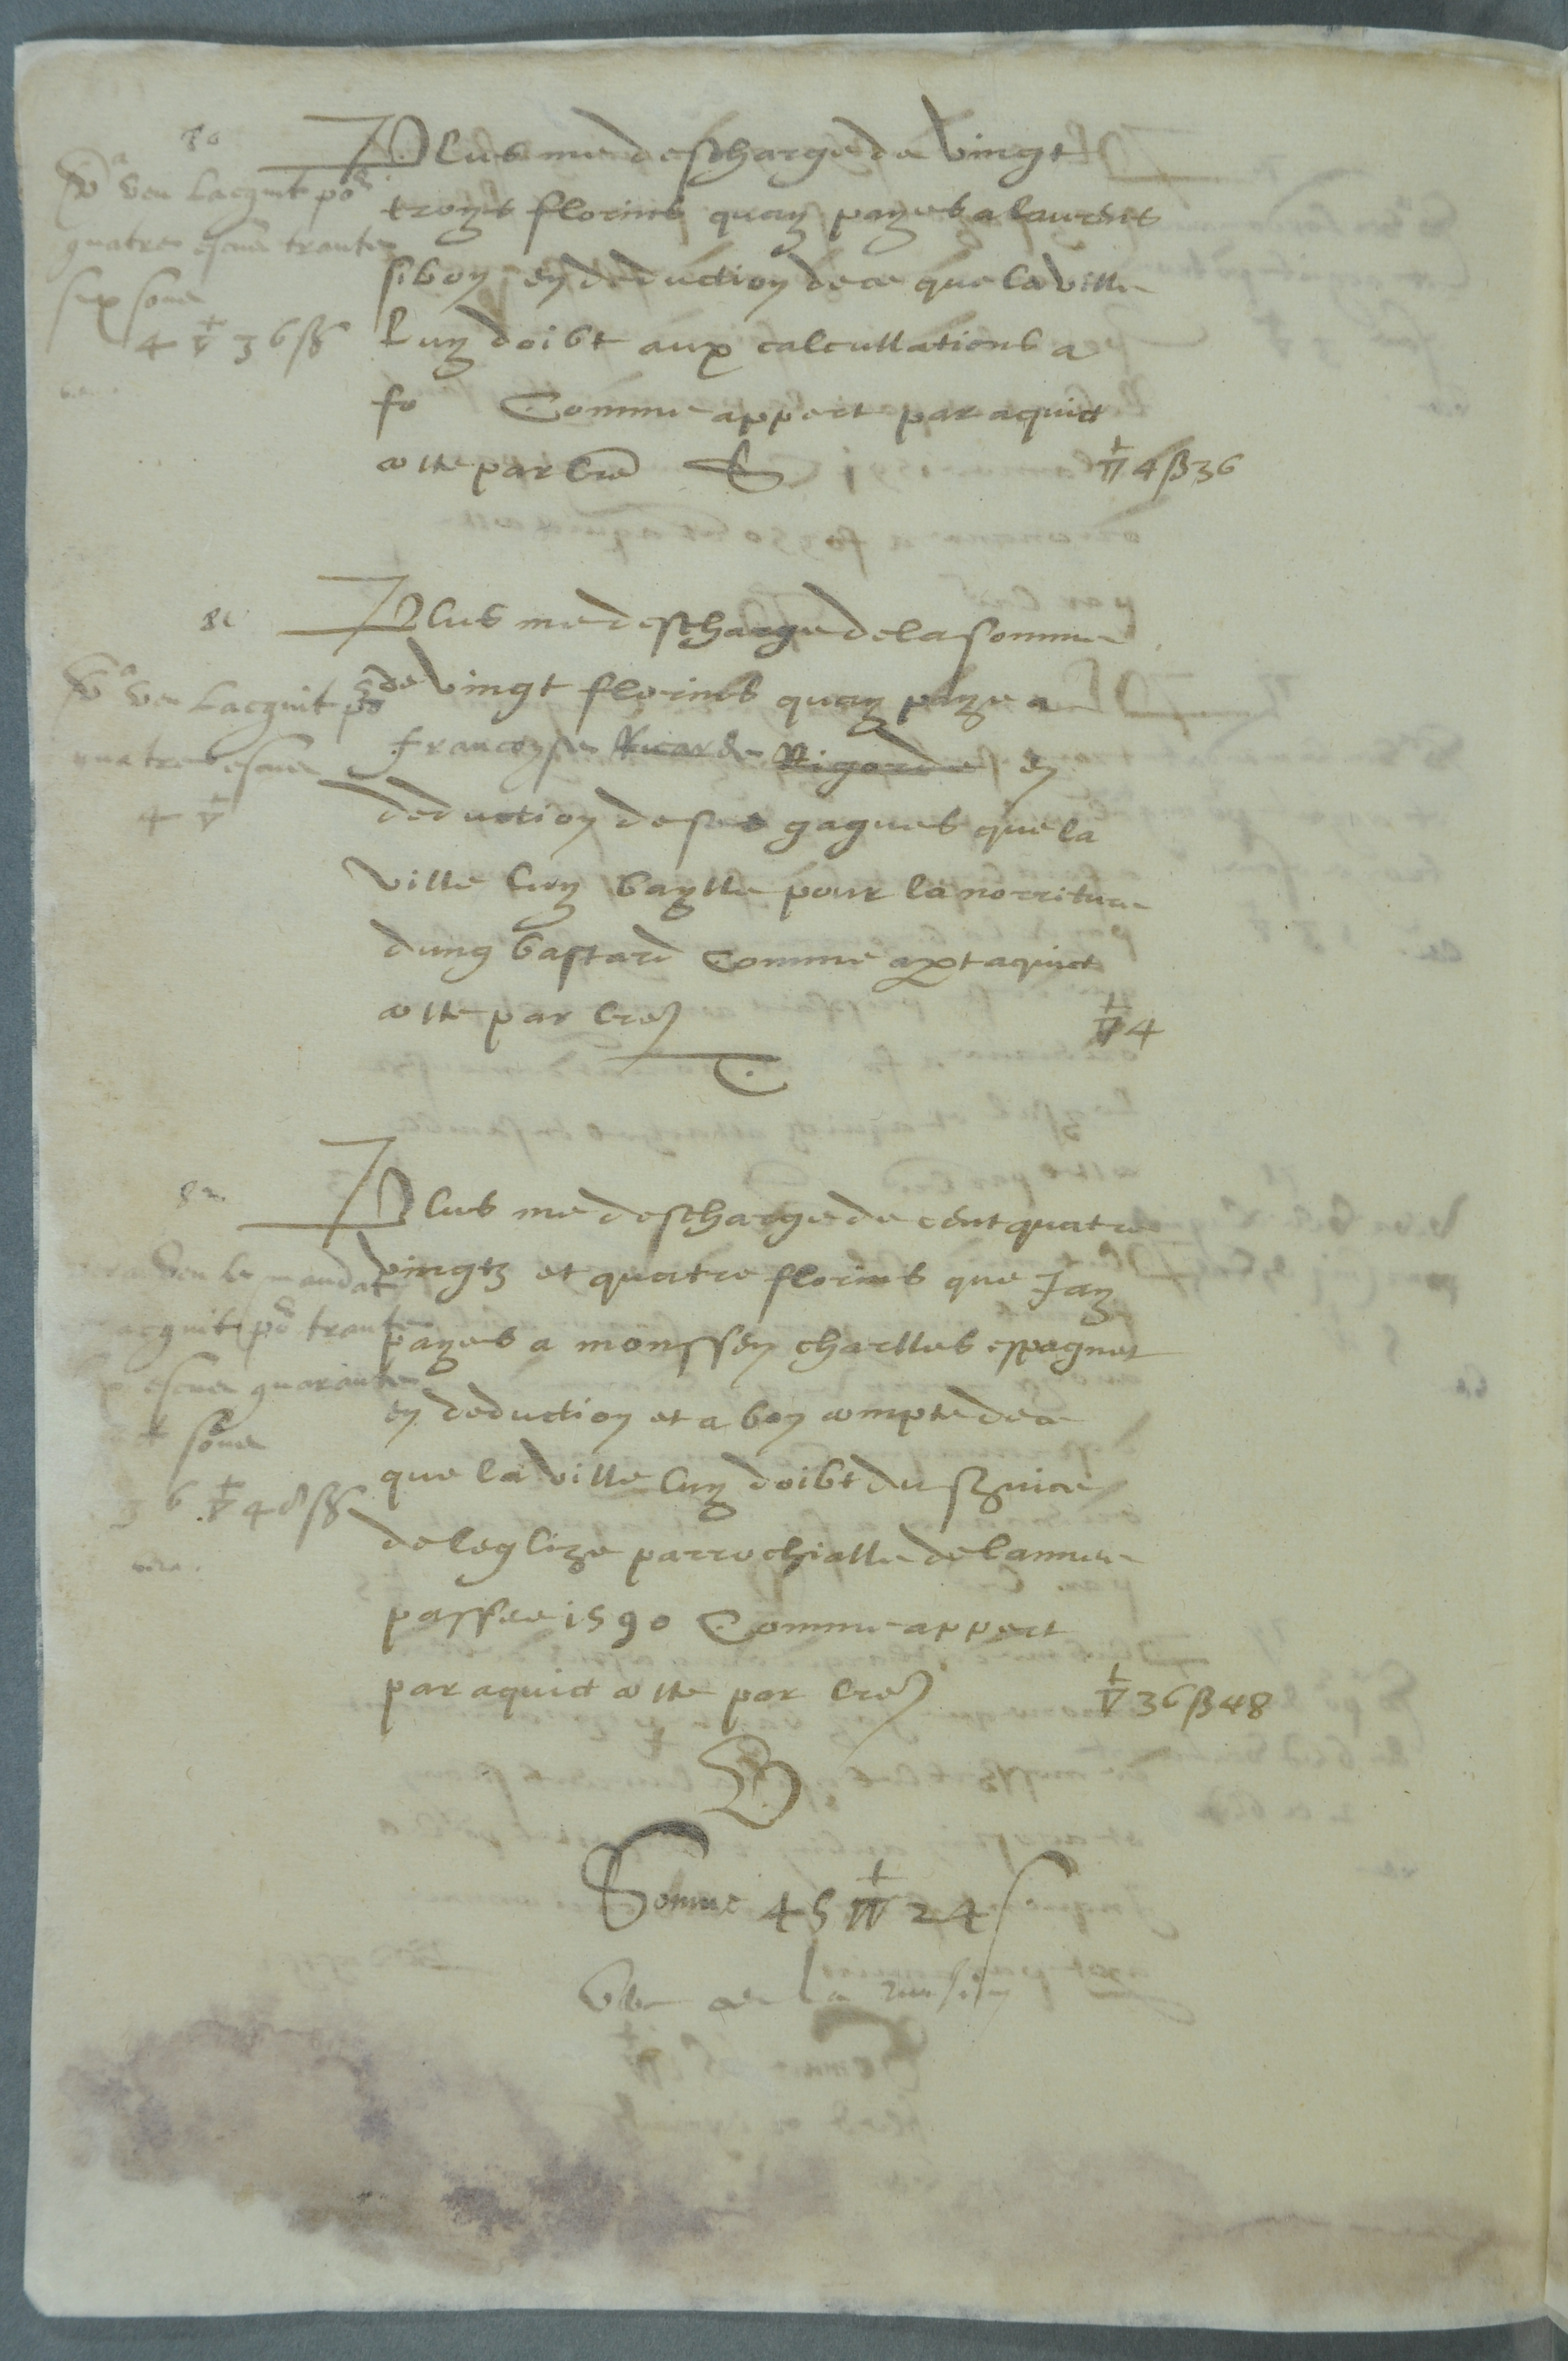 80
Plus me descharge de vingt
troys florins quay payes a laurens
siboy en deduction de ce que la ville
luy doibt aux calcullations a
fo Comme appert par aquict
cotte par lre ▽ 4 ß 36
Va veu lacquit po
quatre escus trante
six soux
4 ▽ 36 ß
81
Plus me descharge de la somme
de vingt florins quay paye a
francoyse Ricarde Rigorde en
deduction de ses gagues que la
ville luy baylle pour la norriture
dung bastard Comme apt aquict
cotte par lre ▽ 4
Va veu lacquit po
quatre escus
4 ▽
82
Plus me descharge de cent quatre
vingtz et quatre florins que Jay
payes a monssen charlles espagnet
en deduction et a bon compte de ce
que la ville luy doibt du service
de leglize parrochialle de lannee
passee 1590 Comme appert
par aquict cotte par lre ▽ 36 ß 48
veu le mandat
acquit po trante
escus quarante
soux
36 ▽ 48 ß
B
Somme 45 ▽ 24 s